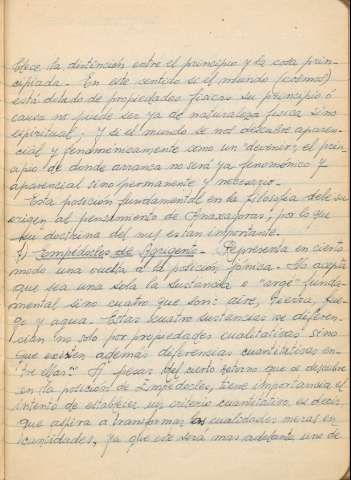 blece la distinción entre el principio y la cosa prin-
cipiada. En este sentido si el mundo (cosmos)
está dotado de propiedades físicas su principio ó
causa no puede ser ya de naturaleza física sino
espiritual; y si el mundo se nos descubre aparen-
cial y fenoménicamente como un "devenir", el prin-
cipio de donde arranca no será ya fenoménico y
aparencial sino permanente y necesario.
Esta posición fundamental en la filosofía debe su
origen al pensamiento de Anaxágoras; por lo que
su doctrina del nus es tan importante.
Empédocles de Agrigento. - Representa en cierto
modo una vuelta a la posición jónica. No acepta
que sea una sola la sustancia o "arge" funda-
mental sino cuatro que son: aire, tierra, fue-
go y agua. Estas cuatro sustancias se diferen-
cian no solo por propiedades cualitativas sino
que existen además diferencias cuantitativas en-
tre ellas. A pesar del cierto retorno que se descubre
en la posición de Empédocles, tiene importancia el
intento de establecer un criterio cuantitativo, es decir
que aspira a transformar las cualidades meras en
cantidades, ya que este será más adelante uno de